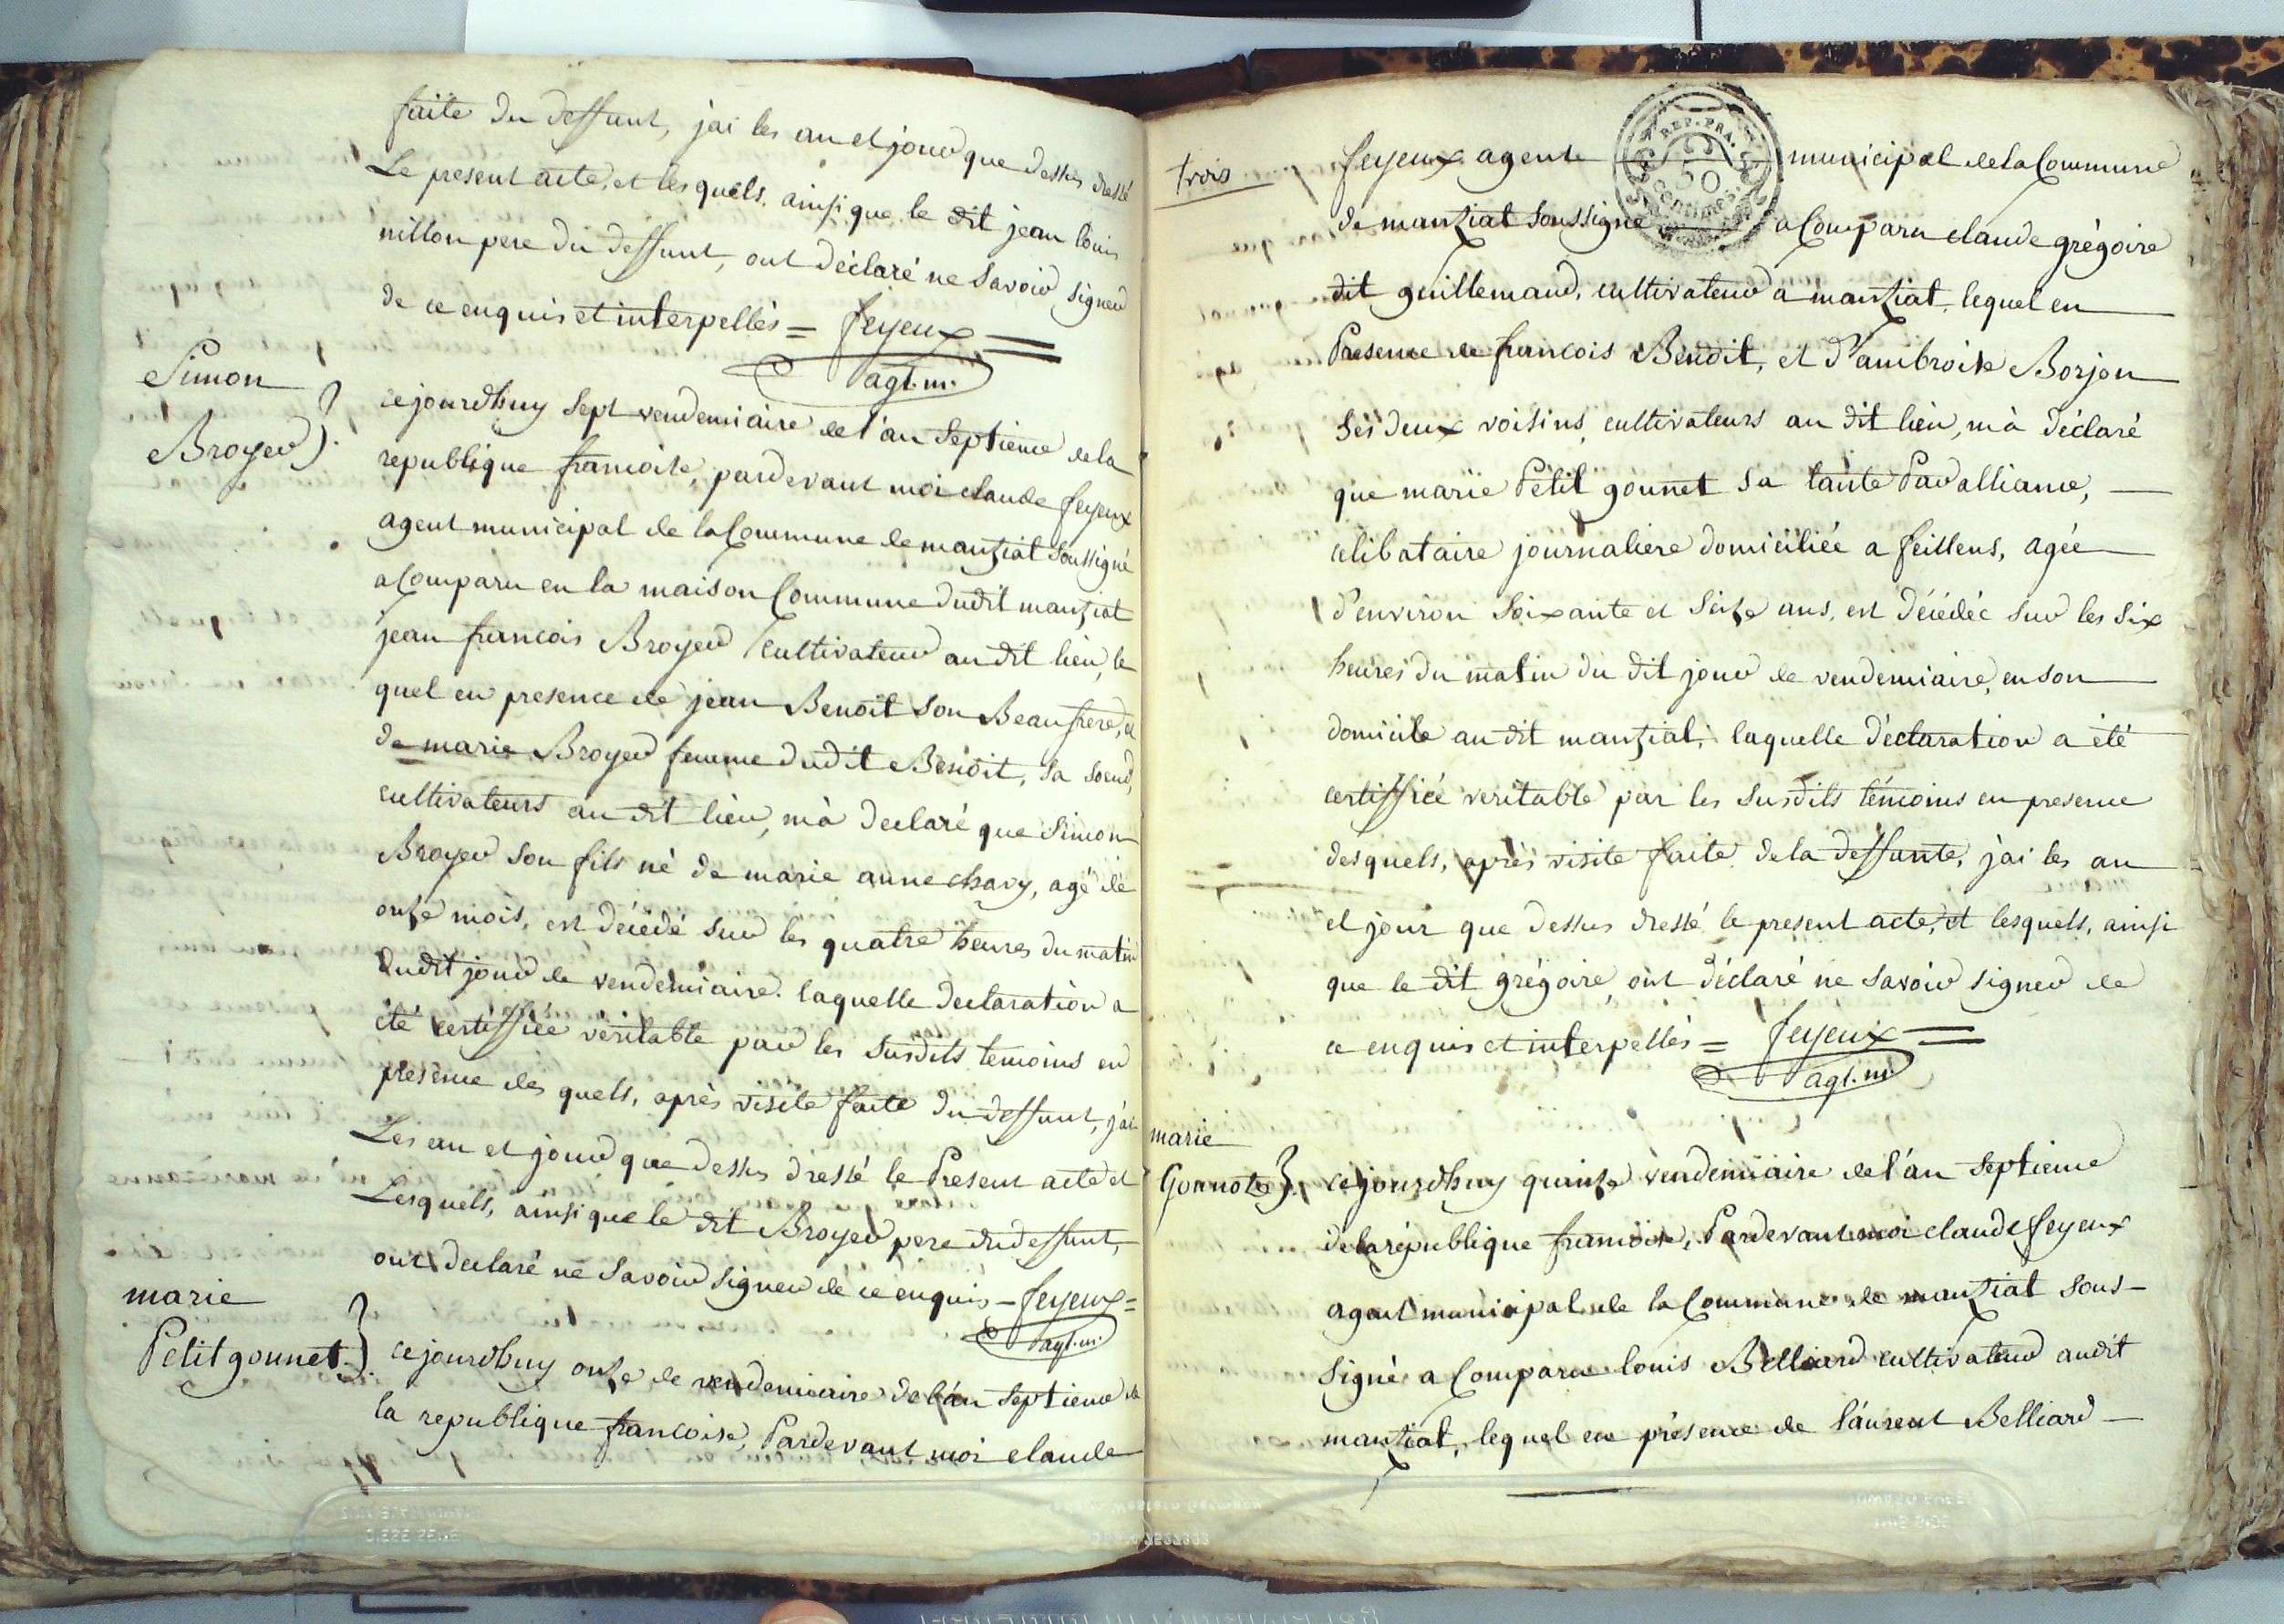 faite du deffunt, jai les an et jour que dessus dressé
Le present acte, et les quels, ainsi que le dit jean louis
nillon pere du deffunt, ont déclaré ne Savoir signer
de ce enquis et interpellés = feyeux =
agt. m.
Simon
Broyer
cejourdhuy Sept vendemiaire de l'an Septieme de la
republique francoise, pardevant moi claude feyeux
agent municipal de la Commune de manziat Soussigné
a Comparu en la maison Commune dudit manziat
jean francois Broyer Cultivateur au dit lieu, le
quel en presence de jean Benoit son Beaufrere, et
de marie Broyer femme dudit Benoit, sa soeur,
cultivateurs au dit lieu, m'a declaré que Simon
Broyer son fils né de marie anne chavy, agé de
onze mois, est décédé sur les quatre heures du matin
dudit jour de vendemiaire. laquelle declaration a
été certiffiée véritable par les susdits temoins en
presence des quels, après visite faite du deffunt, j'ai
Les an et jour que dessus dressé le Present acte et
Lesquels, ainsi que le dit Broyer pere du deffunt,
ont declaré ne Savoir signer de ce enquis - feyeux =
agt. m.
marie
Petit gonnet
cejourdhuy onze de vendemiaire de l'an septieme de
la republique francoise, Pardevant moi claude
trois
feyeux agent municipal de la Commune
REP. FRA.
50
Centimes
de manziat Soussigné a Comparu claude grégoire
dit guillemaud, cultivateur a manziat, lequel en
Presence de francois Benoit, et d'ambroise Borjon
ses deux voisins, cultivateurs au dit lieu, m'a déclaré
que marie Petit gonnet sa tante Par alliance,
celibataire journaliere domiciliée a feillens, agée
d'environ Soixante et Seize ans, est décédée sur les six
heures du matin du dit jour de vendemiaire, en son
domicile au dit manziat, laquelle déclaration a été
certiffiée veritable par les susdits témoins en presence
desquels, après visite faite de la deffunte, j'ai les an
et jour que dessus dressé le present acte, et lesquels, ainsi
que le dit grégoire, ont déclaré ne savoir signer de
ce enquis et interpellés = feyeux =
agt. m.
marie
Gonnote
cejourdhuy quinze vendemiaire de l'an septieme
de la république francoise, Pardevant moi claude feyeux
agent municipal de la Commune de manziat sous-
signé a Comparu louis Belliard cultivateur audit
manziat, lequel en présence de laurent Belliard